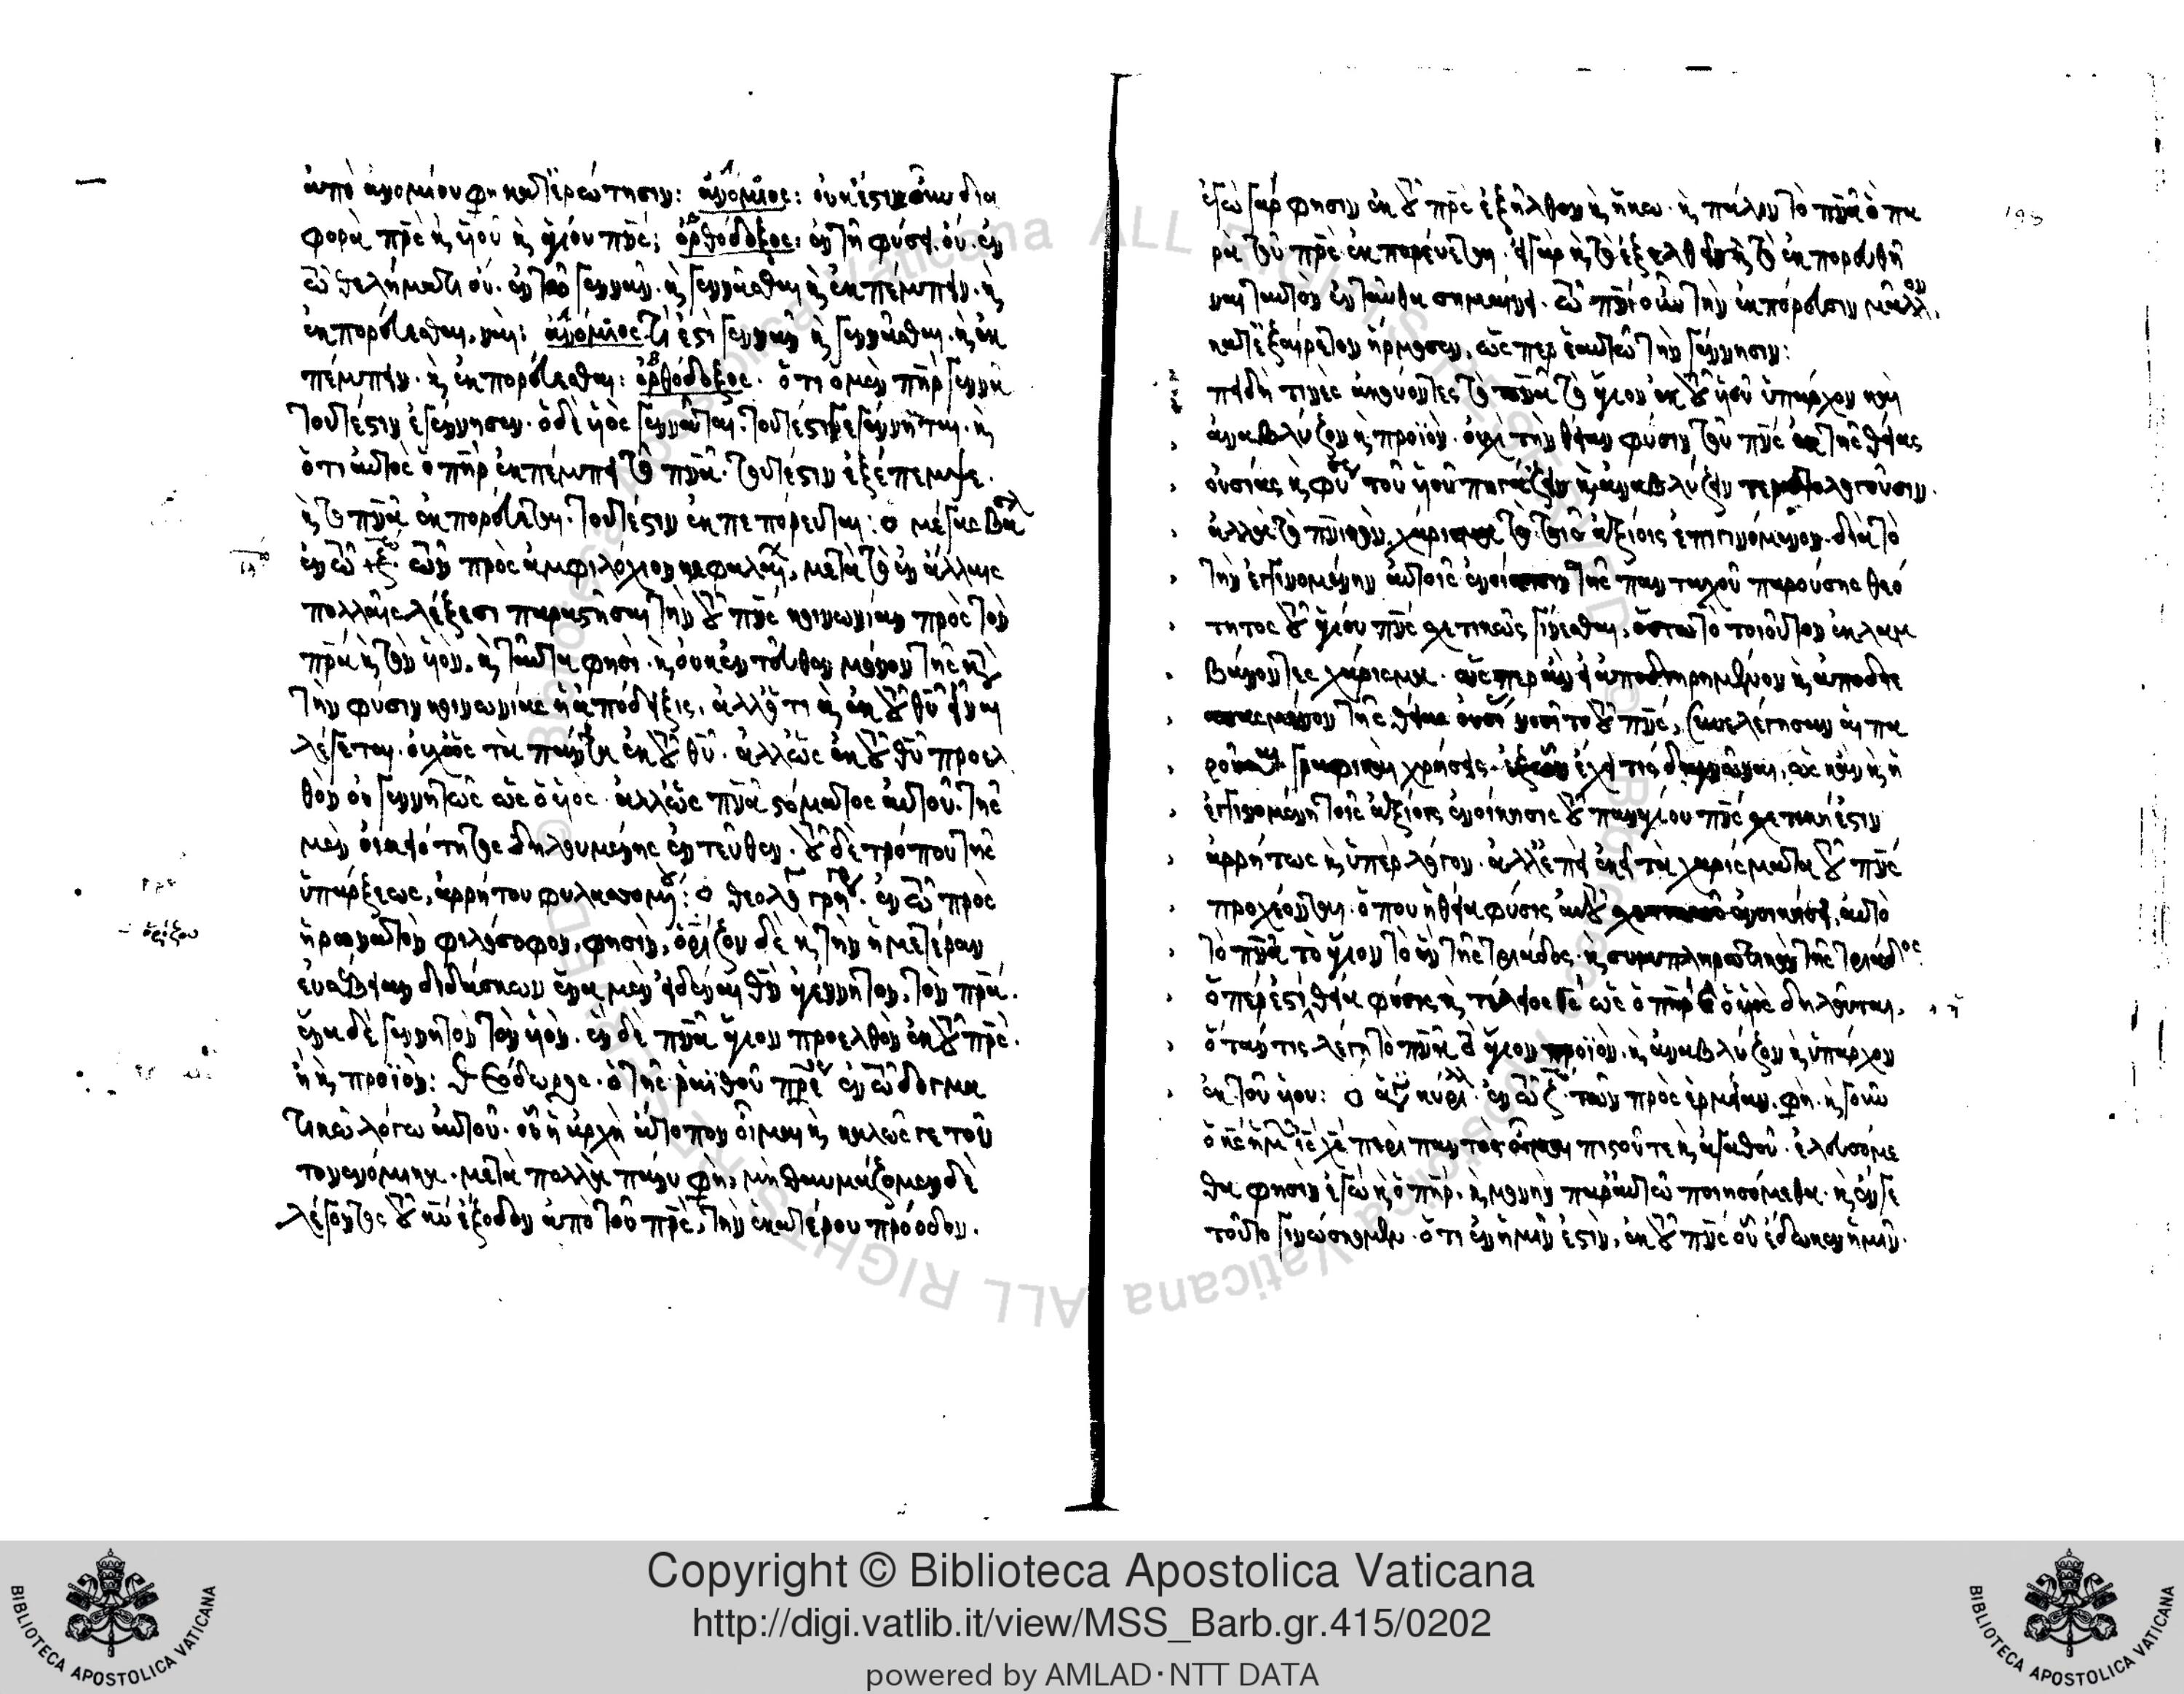 ἀπὸ ἀνομίου φη κατ' ἐρώτησιν: ἀνόμιος: οὐκ ἔστιν οὖν δια
φορὰ πρς καὶ υἱοῦ καὶ ἁγίου πνς; ὀρθόδοξος: ἐν τῆ φύσει οὔ. ἐν
τῶ θελήματι οὔ. ἐν τῶ γεννᾶν. καὶ γεννᾶσθαι καὶ ἐκπέμπειν. καὶ
ἐκπορεύεσθαι, ναί: ἀνόμιος τί ἐστὶ γεννᾶν καὶ γεννᾶσθαι. καὶ ἐκ
πέμπειν. καὶ ἐκπορεύεσθαι: ὀρθόδοξος. ὅτι ὁ μὲν πηρ γεννᾶ
τουτέστιν ἐγέννησεν. ὁ δὲ υἱὸς γεννᾶται. τουτέστι γεγέννηται. καὶ
ὅτι αὐτὸς ὁ πηρ ἐκπέμπει τὸ πνα. τουτέστιν ἐξέπεμψε.
καὶ τὸ πνα ἐκπορεύεται. τουτέστιν ἐκπεπόρευται: ὁ μέγας Βασλ
ἐν τῶ τῶν πρὸς ἀμφιλόχιον κεφαλαί, μετὰ τὸ ἐν ἄλλαις
πολλαῖς λέξεσι παραστῆσαι τὴν τοῦ πνς κοινωνίαν πρὸς τὸν
πρα καὶ τὸν υἱόν, καὶ ταῦτα φησί. καὶ οὐκ ἐντεῦθεν μόνον τῆς κατὰ
τὴν φύσιν κοινωνίας ἡ ἀπόδειξις, ἀλλ' ὅτι καὶ ἐκ τοῦ θυ εἶναι
λέγεται. οὐχ ὡς τὰ πάντα ἐκ τοῦ θυ. ἀλλ' ὡς ἐκ τοῦ θυ προελ
θὸν οὐ γεννητῶς ὡς ὁ υἱός. ἀλλ' ὡς πνα στόματος αὐτοῦ. τῆς
μὲν οἰκειότητος δηλουμένης ἐντεῦθεν. τοῦ δὲ τρόπου τῆς
ὑπάρξεως, ἀρρήτου φυλασσομένου: ὁ θεολό γρη. ἐν τῶ πρὸς
ἥρωνα τὸν φιλόσοφον, φησίν, ὁρίζου δὲ καὶ τὴν ἡμετέραν
εὐσέβειαν διδάσκων ἕνα μὲν εἰδέναι θν ἀγέννητον, τὸν πρα.
ἕνα δὲ γεννητὸν τὸν υἱόν. ἓν δὲ πνα ἅγιον προελθὸν ἐκ τοῦ πρς.
ἢ καὶ προϊόν: Θεόδωρος. ὁ τῆς ῥαϊθοῦ πρε ἐν τῶ δογμα
τικῶ λόγω αὐτοῦ. οὗ ἡ ἀρχὴ ἄτοπον οἶμαι καὶ καλῶς γε τοῦ
μετὰ πολλὰ πάλιν φη, μὴ θαυμάζομεν δὲ
λέγοντος τοῦ κυ ἔξοδον ἀπὸ τοῦ πρς, τὴν ἑκατέρου πρόοδον.
ὁρίζου
193
ἐγὼ γάρ φησιν ἐκ τοῦ πρς ἐξῆλθον καὶ ἥκω. καὶ πάλιν τὸ πνα ὃ πα
ρὰ τοῦ πρς ἐκπορεύεται. εἰ γὰρ καὶ τὸ ἐξελθεῖν καὶ τὸ ἐκπορευθῆ
ναι ταυτὸν ἐνταῦθα σημαίνει. τῶ πνι οὖν τὴν ἐκπόρευσιν μᾶλλον
κατ' ἐξαίρετον ἥρμοσεν, ὥσπερ ἑαυτῶ τὴν γέννησιν:
πειδὴ τινὲς ἀκούοντες τὸ πνα τὸ ἅγιον ἐκ τοῦ υἱοῦ ὑπάρχον καὶ
ἀναβλύζον καὶ προϊόν. οὐχὶ τὴν θείαν φύσιν τοῦ πνς ἐκ τῆς θείας
οὐσίας καὶ φύσεως τοῦ υἱοῦ πηγάζειν καὶ ἀναβλύζειν τερατολογοῦσιν.
ἀλλὰ τὸ πνικὸν χάρισμα τὸ τοῖς ἀξίοις ἐπιγινόμενον. διὰ τὸ
τὴν ἐπιγινομένην αὐτοῖς ἐνοίκησιν τῆς πανταχοῦ παρούσης θεό
τητος τοῦ ἁγίου πνς σχετικῶς γίνεσθαι,
βάνοντες χάρισμα. ὥσπερ
τῆς θείας
γραφικαὶ χρήσεις.
ἐπιγινομένη τοῖς ἀξίοις ἐνοίκησις τοῦ παναγίου πνς σχετική ἐστιν
ἀρρήτως καὶ ὑπὲρ λόγον. ἀλλ' ἐπεὶ ἐκεῖ τὰ χαρίσματα τοῦ πνς
προχέονται. ὅπου ἡ θεία φύσις αὐτοῦ ἐνοικήσει, αὐτὸ
τὸ πνα τὸ ἅγιον τὸ ἓν τῆς τριάδος. καὶ συμπληρωτικὸν τῆς τριάδος
ὅπερ ἐστὶ θεία φύσις καὶ τέλειος θς ὡς ὁ πηρ καὶ ὁ υἱὸς δηλοῦται,
ὅταν τις λέγη τὸ πνα τὸ ἅγιον προϊὸν καὶ ἀναβλύζον καὶ ὑπάρχον
ἐκ τοῦ υἱοῦ: ὁ ἅγ κύριλλ. ἐν τῶ ζ. τῶν πρὸς ἑρμείαν. φη. καὶ γοῦν
ὁ κς ἡμ ις χς περὶ παντὸς πιστοῦ τε καὶ ἀγαθοῦ. ἐλευσόμε
θα φησὶν ἐγὼ καὶ ὁ πηρ. καὶ μονὴν παρ' αὐτῶ ποιησόμεθα. καὶ ἐν γε
τοῦτο γινώσκομεν. ὅτι ἐν ἡμῖν ἐστίν, ἐκ τοῦ πνς οὗ ἔδωκεν ἡμῖν.
Copyright © Biblioteca Apostolica Vaticana
http://digi.vatlib.it/view/MSS_Barb.gr.415/0202
powered by AMLAD·NTT DATA
BIBLIOTECA APOSTOLICA VATICANA
BIBLIOTECA APOSTOLICA VATICANA